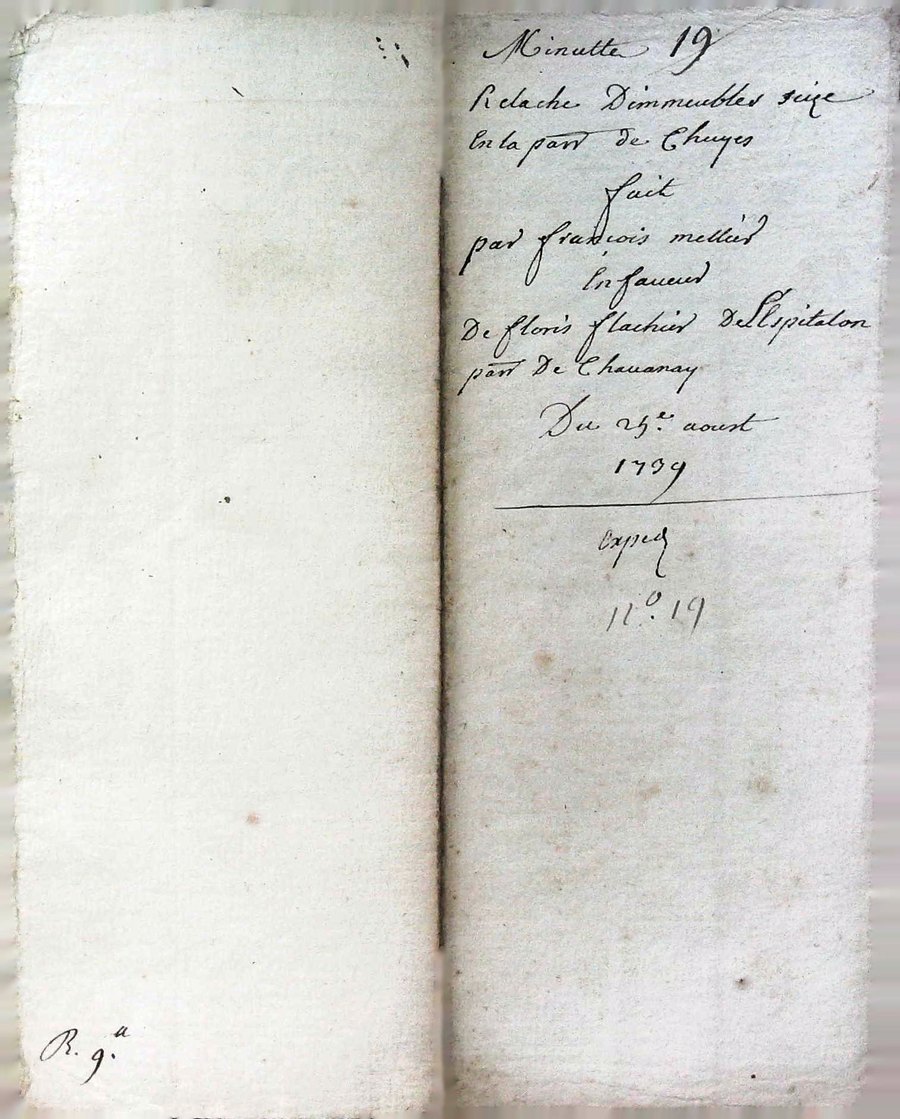 Minutte 19
Relache Dimmeubles size
En la parr de Chuyes
fait
par francois mellier
En faueur
De floris flachier De L'Espitalon
parr De Chauanay
Du 25e. aoust
1739
Exped
no. 19
R. 9.a